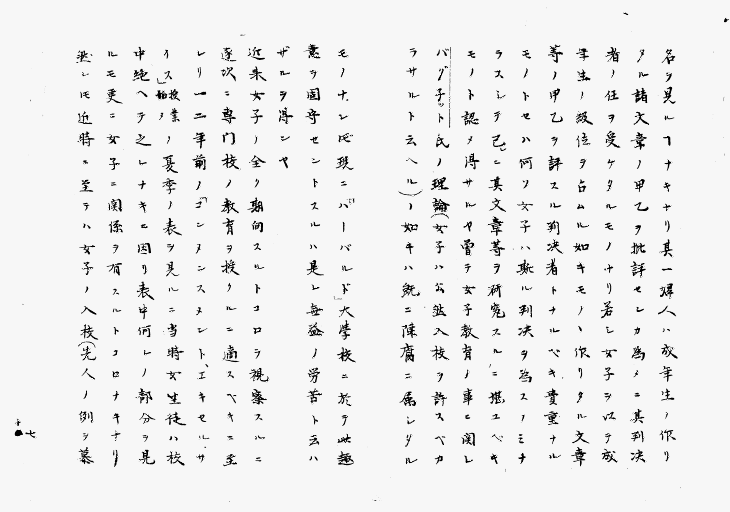 名ヲ見ルヿナキナリ其一婦人ハ成年生ノ作リ
タル諸文章ノ甲乙ヲ批評センカ為メニ其判决
者ノ任ヲ受ケタルモノナリ若シ女子ヲ以テ成
年生ノ級位ヲ占ムル如キモノヽ作リタル文章
等ノ甲乙ヲ評スル判决者トナルベキ貴重ナル
モノトセハ何ソ女子ハ斯ル判决ヲ為スノミナ
ラスシテ己ニ其文章等ヲ研究スルニ堪ユベキ
モノト認メ得サルヤ曽テ女子教育ノ事ニ関シ
バグ子ット氏ノ理論(女子ハ公然入校ヲ許スベカ
ラサルト云ヘル)ノ如キハ既ニ陳腐ニ属シタル
モノナレ𪜈現ニ「バーバルド」大學校ニ於テ此趣
意ヲ固守セントスルハ是レ毎益ノ労苦ト云ハ
ザルヲ得ンヤ
近来女子ノ全ク期向スルトコロヲ視察スルニ
逐次ニ専門校ノ教育ヲ授クルニ適スベキニ至
レリ一二年前ノ「シンヌンスメント、エキセル、サ
イス」授業始メノ夏季ノ表ヲ見ルニ当時女生徒ハ校
中絶ヘテ之レナキニ因リ表中何レノ部分ヲ見
ルモ更ニ女子ニ関係ヲ有スルトコロナキナリ
然レ𪜈近時ニ至テハ女子ノ入校(先人ノ例ヲ慕
十七